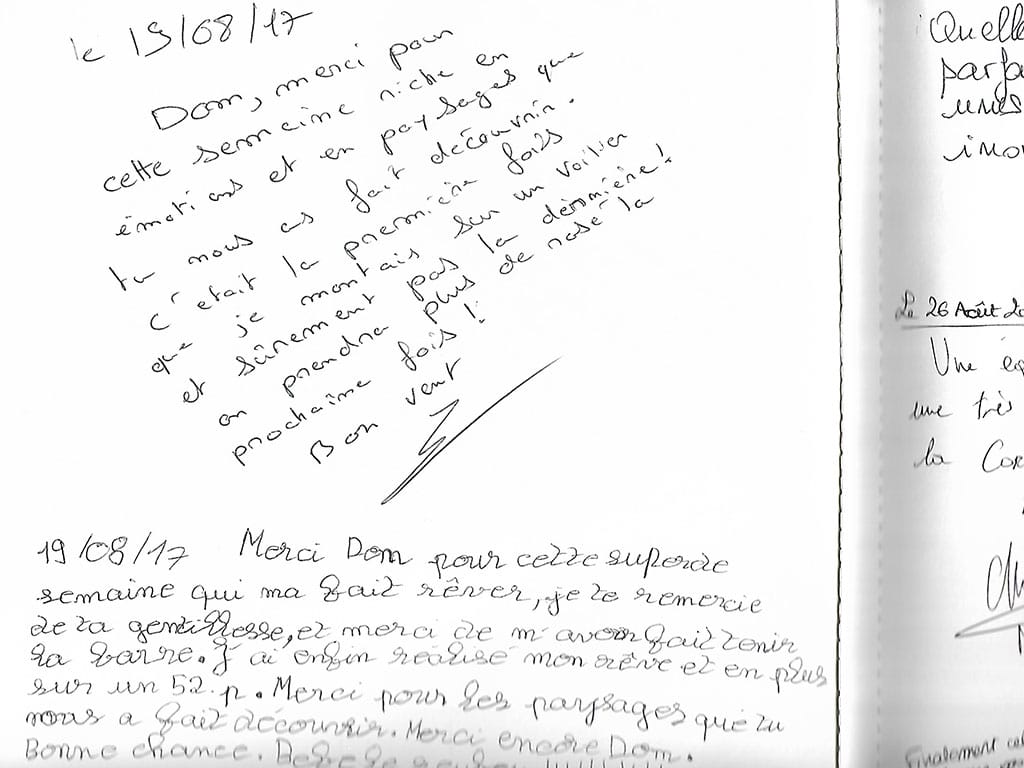 le 19/08/17
Dom, merci pour
cette semaine riche en
émotions et en paysages que
tu nous as fait découvrir.
C'était la première fois
que je montais sur un voilier
et sûrement pas la dernière !
on prendra plus de rosé la
prochaine fois !
Bon vent
19/08/17 Merci Dom pour cette superbe
semaine qui ma fait rêver, je te remercie
de ta gentillesse, et merci de m'avoir fait tenir
la barre. J'ai enfin réalisé mon rêve et en plus
sur un 52.p. Merci pour les paysages que tu
nous a fait découvrir. Merci encore Dom.
Bonne chance.
Quelle
parfa
unes
Le 26 Août 20
Une
une très
la Cor
Finalement